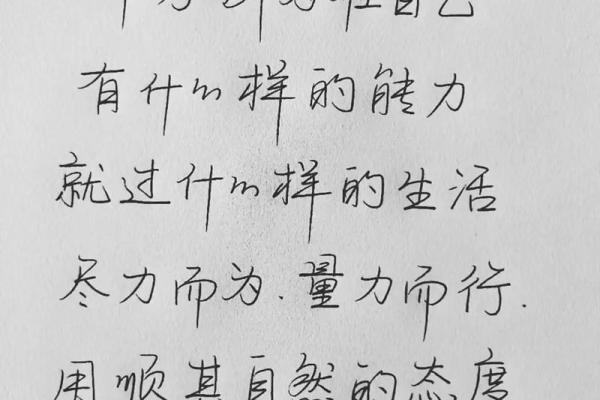 自己
有什么样的能力
就过什么样的生活
尽力而为.量力而行.
用顺其自然的态度